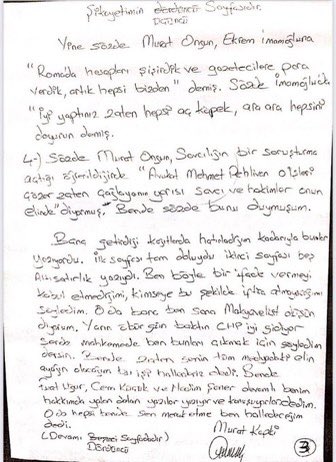 Şikayetimin dördüncü Sayfasıdır.
DÖRDÜNCÜ
Yine sözde Murat Ongun, Ekrem İmamoğluna
"Romada hesapları şişirdik ve gazetecilere para
verdik, artık hepsi bizden" demiş. Sözde İmamoğluda
"İyi yaptınız zaten hepsi aç köpek, ara ara hepsini
doyurun demiş.
4-) Sözde Murat Ongun, Savcılığın bir soruşturma
açtığı öğrenildiğinde "Avukat Mehmet Pehlivan
çözer zaten Çağlayanın yarısı savcı ve hakimler onun
elinde" diyormuş. Bende sözde bunu duymuşum.
Bana getirdiği kağıtlarda hatırladığım kadarıyla bunlar
yazıyordu. İlk sayfası tam doluydu ikinci sayfası beş
Altı satırlık yazıydı. Ben böyle bir ifade vermeyi
kabul etmediğimi, kimseye bu şekilde iftira atmayacağımı
söyledim. O da bana ben seni Makyavelist
diyorum. Yarın öbür gün baktın CHP iyi gidiyor
sende mahkemede ben bunları çıkmak için söyledim
dersin. Bende zaten senin tüm medya
ayağın olacağım bu işi hallederiz dedi. Bende
Fuat Uğur, Cem Küçük ve Nedim Şener devamlı benim
hakkımda yalan dolan yazılar yazıyor ve konuşuyorlar dedim.
O da hepsi bende sen merak etme ben halledeceğim
dedi.
Murat Kapki
(Devamı Beşinci Sayfadadır)
DÖRDÜNCÜ
3